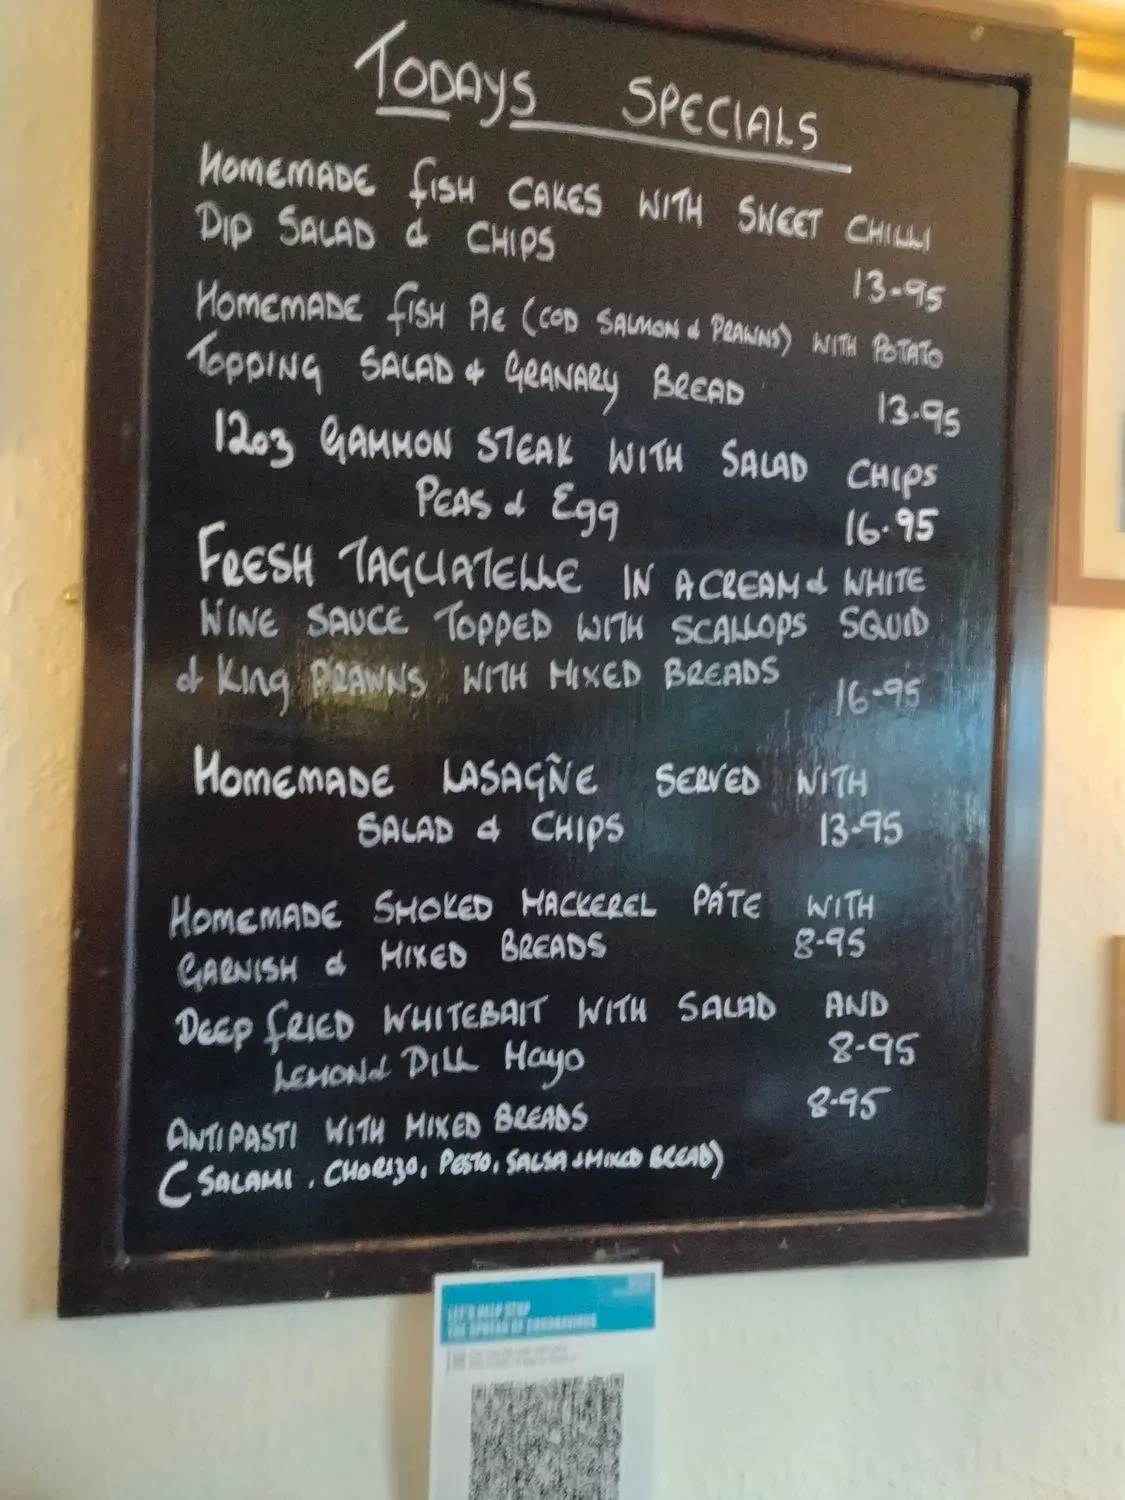 TODAYS SPECIALS
HOMEMADE FISH CAKES WITH SWEET CHILLI
DIP SALAD & CHIPS 13-95
HOMEMADE FISH PIE (COD SALMON & PRAWNS) WITH POTATO
TOPPING SALAD & GRANARY BREAD 13-95
12oz GAMMON STEAK WITH SALAD CHIPS
PEAS & Egg 16.95
FRESH TAGLIATELLE IN A CREAM & WHITE
WINE SAUCE TOPPED WITH SCALLOPS SQUID
& KING PRAWNS WITH MIXED BREADS 16-95
HOMEMADE LASAGÑE SERVED WITH
SALAD & CHIPS 13-95
HOMEMADE SMOKED MACKEREL PÁTE WITH
GARNISH & MIXED BREADS 8-95
DEEP FRIED WHITEBAIT WITH SALAD AND
LEMON & DILL MAYO 8-95
ANTIPASTI WITH MIXED BREADS 8-95
(SALAMI, CHORIZO, PESTO, SALSA & MIXED BREAD)
LET'S HELP STOP
THE SPREAD OF CORONAVIRUS